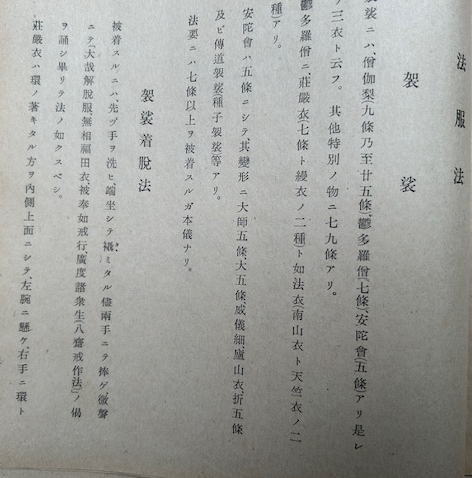 法服
袈裟
袈裟ニハ、僧伽梨(九條乃至廿五條)、鬱多羅僧(七條)、安陀會(五條)アリ是レ
ヲ三衣ト云フ。其他特別ノ物ニ七九條アリ。
鬱多羅僧ニ、莊嚴衣(七條ト縵衣ノ二種)ト如法衣(南山衣ト天竺衣ノ二
種)アリ。
安陀會ハ五條ニシテ、其變形ニ大師五條、大五條、威儀細、廬山衣、折五條
及ビ傳道袈裟(種子袈裟)等アリ。
法要ニハ七條以上ヲ被着スルガ本儀ナリ。
袈裟着脱法
被着スルニハ先ヅ手ヲ洗ヒ端坐シテ襵ミタル儘兩手ニテ捧ゲ微聲
ニテ「大哉解脫服、無相福田衣、被奉如戒行、廣度諸衆生(八齋戒作法)」ノ偈
ヲ誦シ畢リテ法ノ如クスベシ。
莊嚴衣ハ環ノ著キタル方ヲ內側上面ニシテ、左腕ニ懸ケ、右手ニ環ト